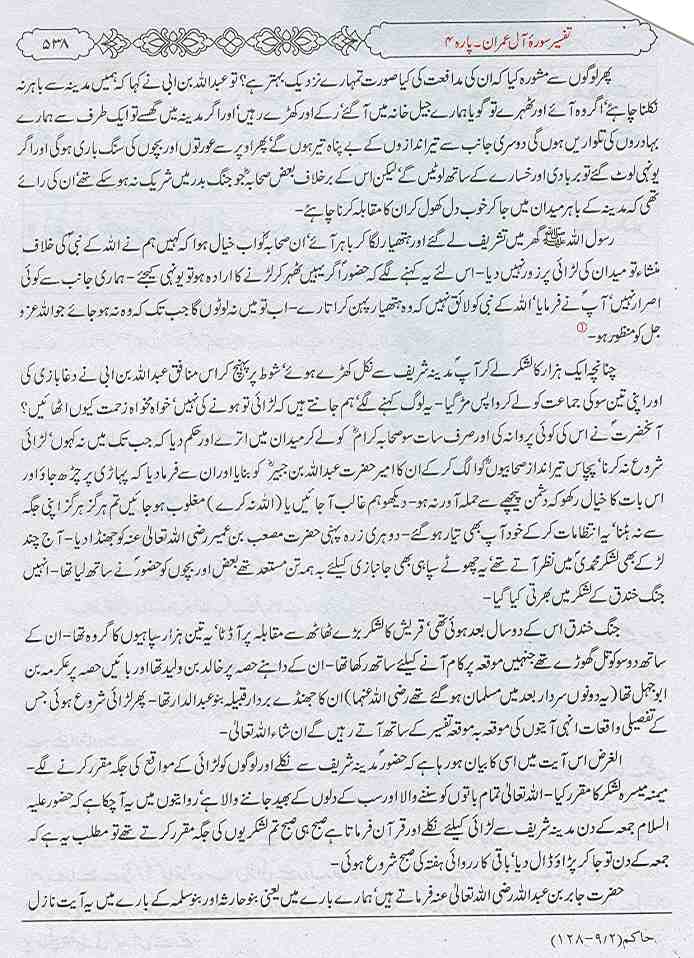 تفسیر سورۂ آل عمران۔ پارہ ۴
۵۳۸
پھر لوگوں سے مشورہ کیا کہ ان کی مدافعت کی کیا صورت تمہارے نزدیک بہتر ہے؟ تو عبداللہ بن ابی نے کہا کہ ہمیں مدینہ سے باہر نہ
نکلنا چاہئے' اگر وہ آئے اور ٹھہرے تو گویا ہمارے جیل خانہ میں آ گئے' رکے اور کھڑے رہیں' اور اگر مدینہ میں گھسے تو ایک طرف سے ہمارے
بہادروں کی تلواریں ہوں گی دوسری جانب سے تیر اندازوں کے بے پناہ تیر ہوں گے' پھر اوپر سے عورتوں اور بچوں کی سنگ باری ہوگی اور اگر
یونہی لوٹ گئے تو بربادی اور خسارے کے ساتھ لوٹیں گے' لیکن اس کے برخلاف بعض صحابہؓ جو جنگ بدر میں شریک نہ ہو سکے تھے' ان کی رائے
تھی کہ مدینہ کے باہر میدان میں جا کر خوب دل کھول کر ان کا مقابلہ کرنا چاہئے-
رسول اللہ ﷺ گھر میں تشریف لے گئے اور ہتھیار لگا کر باہر آئے' ان صحابہؓ کو اب خیال ہوا کہ کہیں ہم نے اللہ کے نبیؐ کی خلاف
منشاء تو میدان کی لڑائی پر زور نہیں دیا- اس لئے یہ کہنے لگے کہ حضورؐ اگر یہیں ٹھہر کر لڑنے کا ارادہ ہو تو یونہی کیجئے- ہماری جانب سے کوئی
اصرار نہیں' آپؐ نے فرمایا' اللہ کے نبی کو لائق نہیں کہ وہ ہتھیار پہن کر اتارے- اب تو میں نہ لوٹوں گا جب تک کہ وہ نہ ہو جائے جو اللہ عزو
جل کو منظور ہو- ①
چنانچہ ایک ہزار کا لشکر لے کر آپؐ مدینہ شریف سے نکل کھڑے ہوئے' شوط پر پہنچ کر اس منافق عبداللہ بن ابی نے دغا بازی کی
اور اپنی تین سو کی جماعت کو لے کر واپس مڑ گیا- یہ لوگ کہنے لگے' ہم جانتے ہیں کہ لڑائی تو ہونے کی نہیں' خواہ مخواہ زحمت کیوں اٹھائیں؟
آنحضرتؐ نے اس کی کوئی پروا نہ کی اور صرف سات سو صحابہ کرامؓ کو لے کر میدان میں اترے اور حکم دیا کہ جب تک میں نہ کہوں' لڑائی
شروع نہ کرنا' پچاس تیر انداز صحابیوںؓ کو الگ کر کے ان کا امیر حضرت عبداللہ بن جبیرؓ کو بنایا اور ان سے فرما دیا کہ پہاڑی پر چڑھ جاؤ اور
اس بات کا خیال رکھو کہ دشمن پیچھے سے حملہ آور نہ ہو- دیکھو ہم غالب آ جائیں یا (اللہ نہ کرے) مغلوب ہو جائیں تم ہرگز ہرگز اپنی جگہ
سے نہ ہٹنا' یہ انتظامات کر کے خود آپ بھی تیار ہو گئے- دوہری زرہ پہنی حضرت مصعب بن عمیر رضی اللہ تعالیٰ عنہ کو جھنڈا دیا- آج چند
لڑکے بھی لشکر محمدیؐ میں نظر آتے تھے' یہ چھوٹے سپاہی بھی جانبازی کیلئے ہمہ تن مستعد تھے بعض اور بچوں کو حضورؐ نے ساتھ لیا تھا- انہیں
جنگ خندق کے لشکر میں بھرتی کیا گیا-
جنگ خندق اس کے دو سال بعد ہوئی تھی' قریش کا لشکر بڑے ٹھاٹھ سے مقابلہ پر آ ڈٹا' یہ تین ہزار سپاہیوں کا گروہ تھا- ان کے
ساتھ دو سو کوتل گھوڑے تھے جنہیں موقعہ پر کام آنے کیلئے ساتھ رکھا تھا- ان کے داہنے حصہ پر خالد بن ولید تھا اور بائیں حصہ پر عکرمہ بن
ابو جہل تھا (یہ دونوں سردار بعد میں مسلمان ہو گئے تھے رضی اللہ عنہما) ان کا جھنڈے بردار قبیلہ بنو عبدالدار تھا- پھر لڑائی شروع ہوئی جس
کے تفصیلی واقعات انہی آیتوں کی موقعہ بہ موقعہ تفسیر کے ساتھ آتے رہیں گے ان شاء اللہ تعالیٰ-
الغرض اس آیت میں اسی کا بیان ہو رہا ہے کہ حضورؐ مدینہ شریف سے نکلے اور لوگوں کو لڑائی کے مواقع کی جگہ مقرر کرنے لگے-
میمنہ میسرہ لشکر کا مقرر کیا- اللہ تعالیٰ تمام باتوں کو سننے والا اور سب کے دلوں کے بھید جاننے والا ہے' روایتوں میں یہ آ چکا ہے کہ حضور علیہ
السلام جمعہ کے دن مدینہ شریف سے لڑائی کیلئے نکلے اور قرآن فرماتا ہے صبح ہی صبح تم لشکریوں کی جگہ مقرر کرتے تھے تو مطلب یہ ہے کہ
جمعہ کے دن تو جا کر پڑاؤ ڈال دیا' باقی کارروائی ہفتہ کی صبح شروع ہوئی-
حضرت جابر بن عبداللہ رضی اللہ تعالیٰ عنہ فرماتے ہیں' ہمارے بارے میں یعنی بنو حارثہ اور بنو سلمہ کے بارے میں یہ آیت نازل
حاکم (۲/۹-۱۲۸)